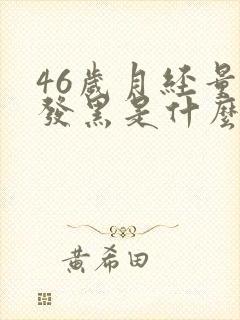 46歲月經量
發黑是什麼
黃希田